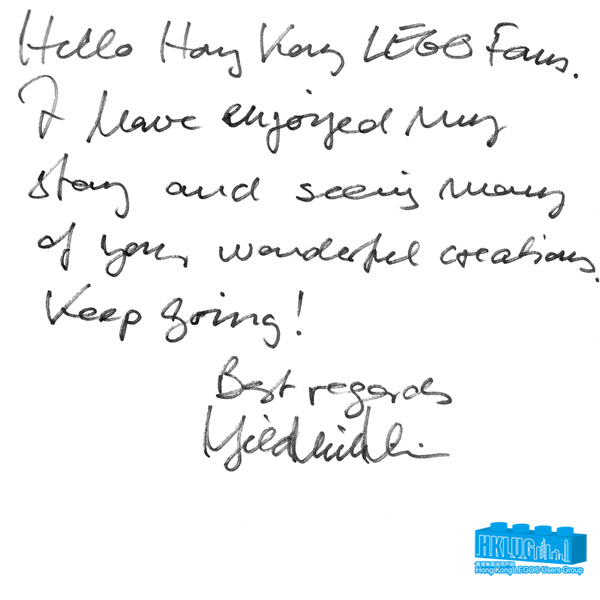 Hello Hong Kong LEGO Fans.
I have enjoyed my
stay and seeing many
of your wonderful creations.
Keep going!
Best regards
HKLUG
Hong Kong LEGO® Users Group